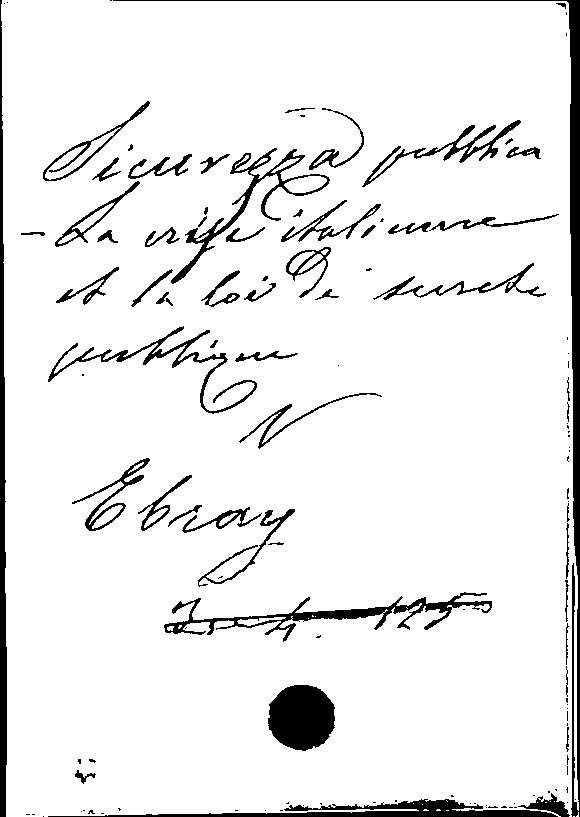 Sicurezza pubblica
- La crise italienne
et la loi de sureté
publique
V
Ebray